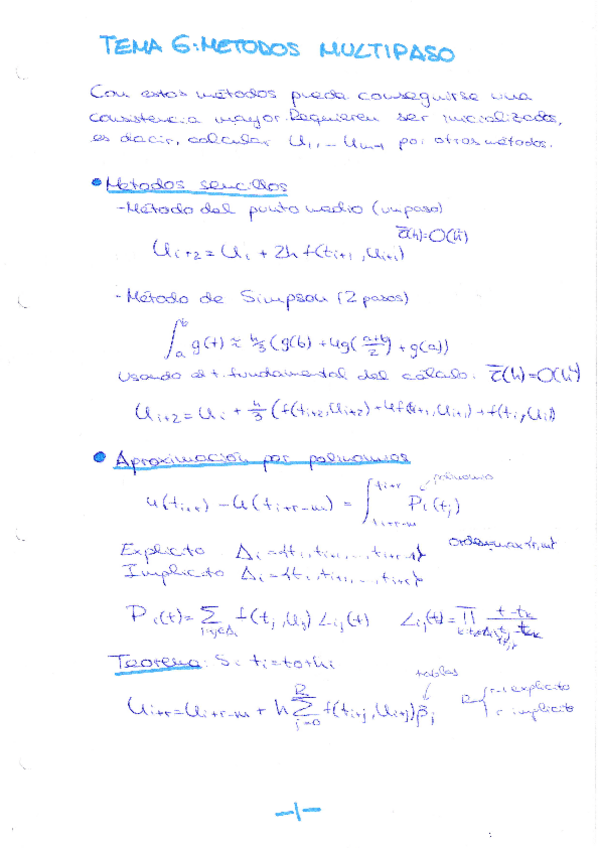 TEMA 6: METODOS MULTIPASO
Con estos métodos puede conseguirse una
consistencia mayor. Requieren ser inicializados,
es decir, calcular U₁, … Uₘ₋₁ por otros métodos.
• Metodos sencillos
- Método del punto medio (un paso)
τ̄(h)=O(h²)
Uᵢ₊₂ = Uᵢ + 2h f(tᵢ₊₁, Uᵢ₊₁)
- Método de Simpson (2 pasos)
∫ₐᵇ g(t) ≈ h/3 (g(b) + 4g((a+b)/2) + g(a))
Usando el t. fundamental del cálculo. τ̄(h)=O(h⁴)
Uᵢ₊₂ = Uᵢ + h/3 (f(tᵢ₊₂, Uᵢ₊₂) + 4f(tᵢ₊₁, Uᵢ₊₁) + f(tᵢ, Uᵢ))
• Aproximación por polinomios
polinomio
u(tᵢ₊ᵣ) - u(tᵢ₊ᵣ₋ₘ) = ∫ Pᵢ(tⱼ)
tᵢ₊ᵣ
tᵢ₊ᵣ₋ₘ
Explicito Δᵢ = {tᵢ, tᵢ₊₁, …, tᵢ₊ᵣ₋₁} orden=max{r,m}
Implicito Δᵢ = {tᵢ, tᵢ₊₁, …, tᵢ₊ᵣ}
Pᵢ(t) = Σ f(tⱼ, Uⱼ) Lᵢⱼ(t) Lᵢⱼ(t) = Π (t-tₖ)/(tⱼ-tₖ)
Teorema: Si tᵢ = t₀+hi
tablas
Uᵢ₊ᵣ = Uᵢ₊ᵣ₋ₘ + h Σ f(tᵢ₊ⱼ, Uᵢ₊ⱼ) βⱼ
R
j=0
R { r-1 explicito
r implicito
-1-